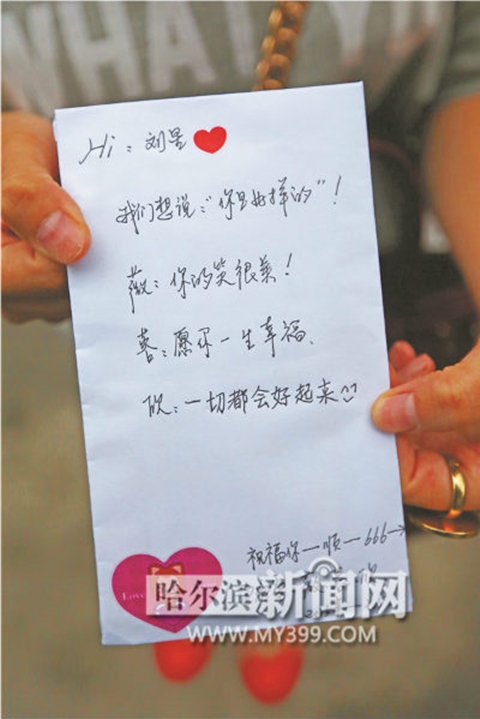 WHAT
Hi：刘星
我们想说："你是好样的"！
薇：你的笑很美！
蓉：愿你一生幸福、
欣：一切都会好起来
祝福你一顺一666→
Love
哈尔滨新闻网
WWW.MY399.COM